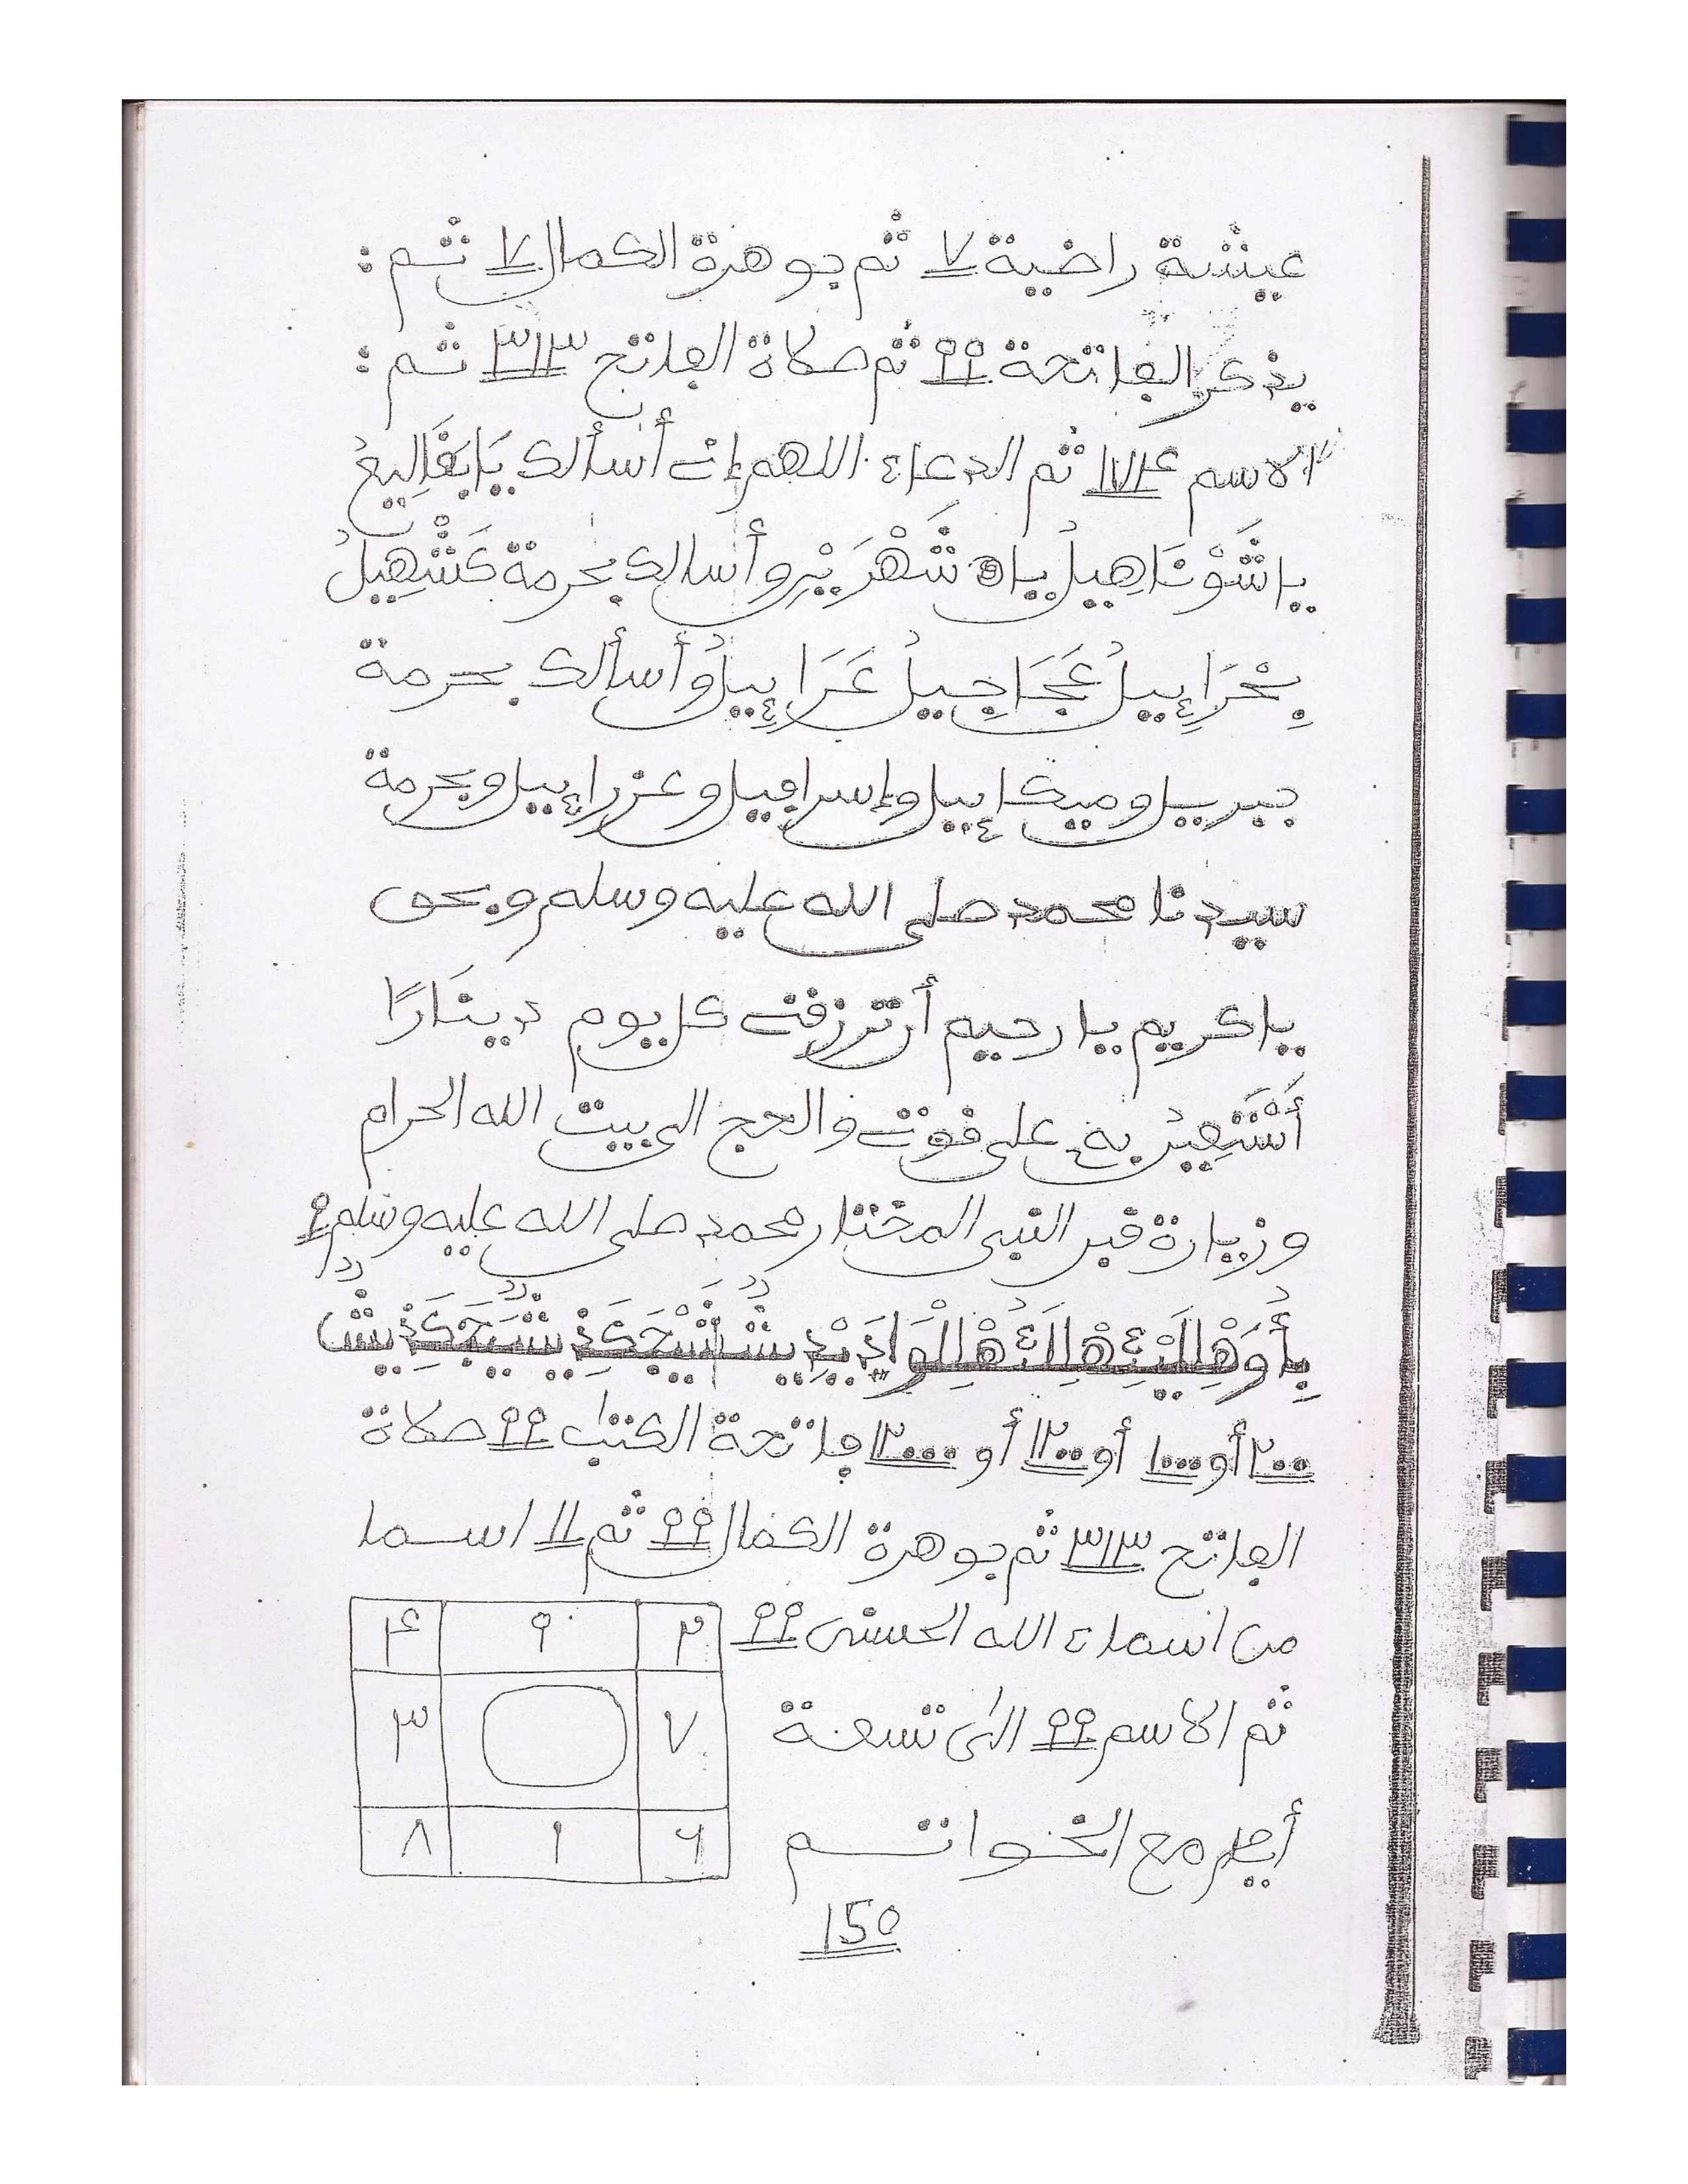 عيشة راضية ٧ ثم جوهرة الكمال ٧ ثم :
يذكر الفاتحة ٩٩ ثم صلاة الفاتح ٣١٣ ثم :
الاسم ١٧٤ ثم الدعاء اللهم إنى أسألك يَا
يا شَوْنَاهِيلُ يا وأسالك بحرمة كَشْهِيلُ
عَجَاجِيلُ عَرَاءِيلُ وأسألك بحرمة
جبريل وميكاءيل وإسرافيل وعزراءيل وبحرمة
سيدنا محمد صلى الله عليه وسلم وبحق
ياكريم يا رحيم أن ترزقنى كل يوم دينَارًا
أَسْتَعِينُ به على قوتى والحج الى بيت الله الحرام
وزيارة قبر النبي المختار محمد صلى الله عليه وسلم ٩
٢٠٠ أو ١٠٠٠ أو ١٢٠٠ أو ١٢٠٠٠ فاتحة الكتاب ٩٩ صلاة
الفاتح ٣١٣ ثم جوهرة الكمال ٩٩ ثم ١١ اسما
من اسماء الله الحسنى ٩٩
ثم الاسم ٩٩ الى تسعة
أيام مع الخواتم
٢ ٩ ٤
٧ ٣
٦ ١ ٨
150